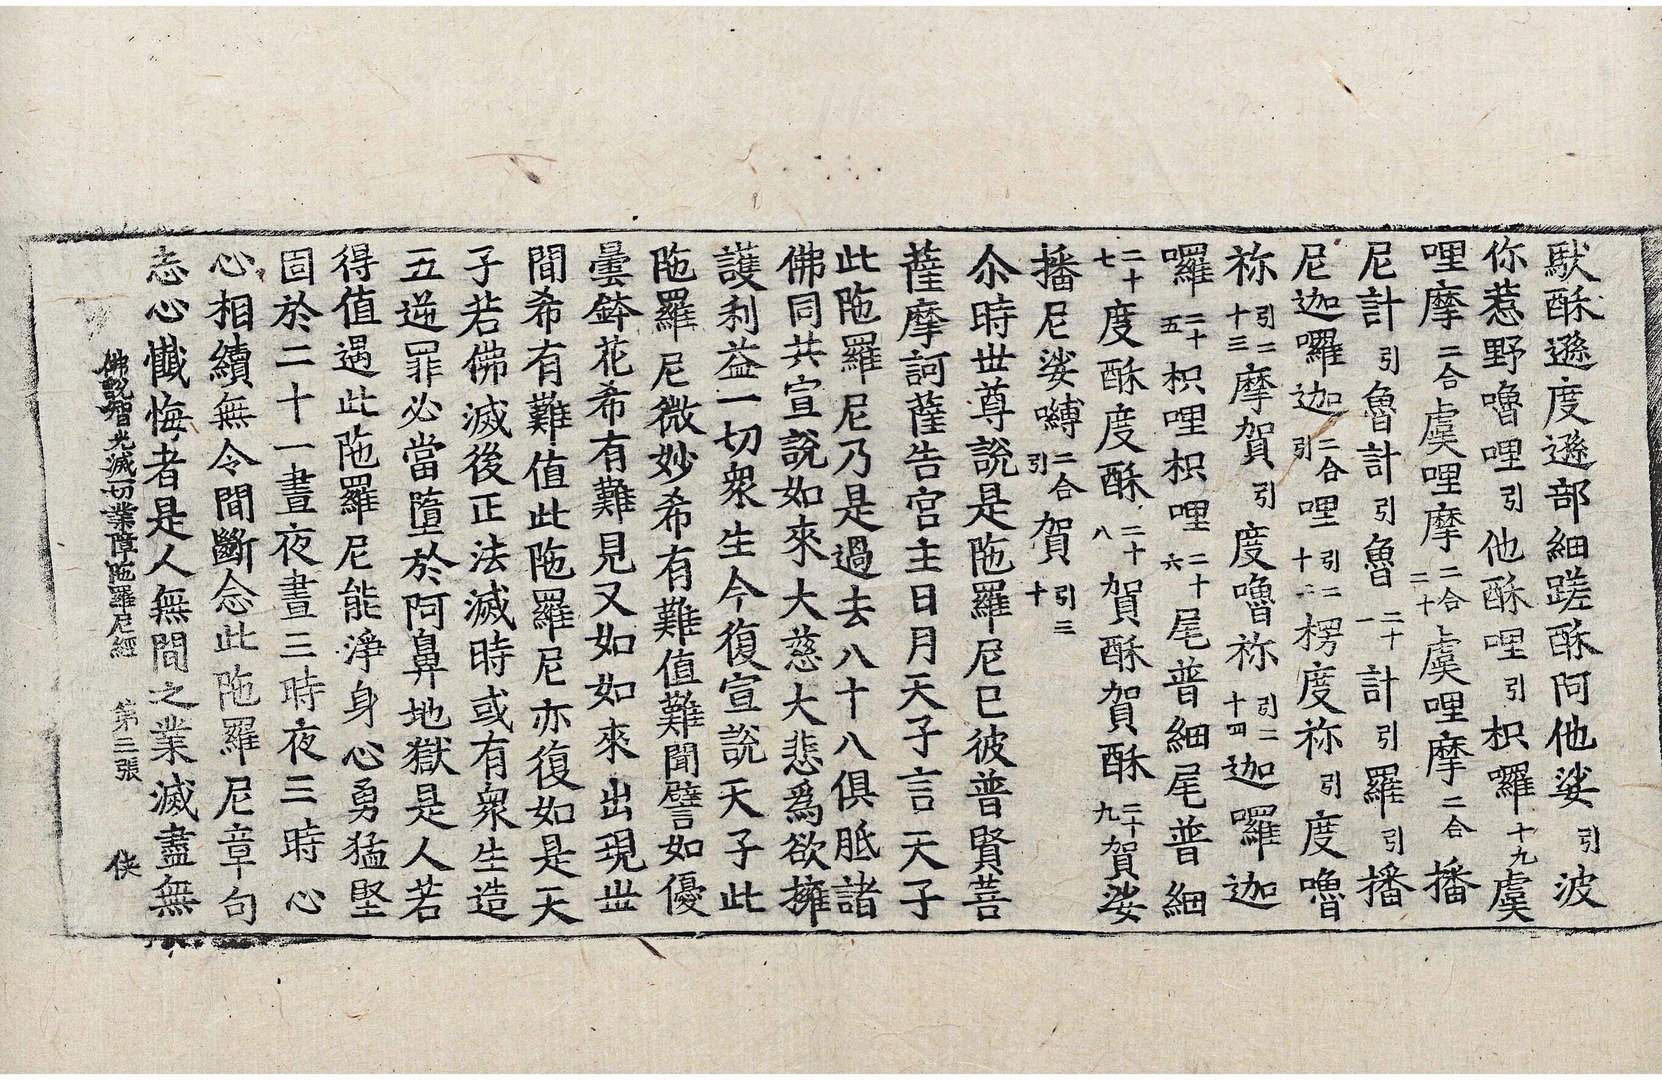 馱酥遜度遜部細蹉酥阿他娑引波
你惹野嚕哩引他酥哩引枳囉十九虞
哩摩二合虞哩摩二合二十虞哩摩二合播
尼計引魯計引魯二十一計引羅引播
尼迦囉迦二合引哩引二十二楞度祢引度嚕
祢引二十三摩賀引度嚕祢引二十四迦囉迦
囉二十五枳哩枳哩二十六尾普細尾普細
二十七度酥度酥二十八賀酥賀酥二十九賀娑
播尼娑嚩二合引賀引三十
尒時世尊說是陁羅尼已彼普賢菩
薩摩訶薩告宮主日月天子言天子
此陁羅尼乃是過去八十八俱胝諸
佛同共宣說如來大慈大悲爲欲擁
護利益一切衆生今復宣說天子此
陁羅尼微妙希有難值難聞譬如優
曇鉢花希有難見又如如來出現世
間希有難值此陁羅尼亦復如是天
子若佛滅後正法滅時或有衆生造
五逆罪必當墮於阿鼻地獄是人若
得值遇此陁羅尼能淨身心勇猛堅
固於二十一晝夜晝三時夜三時心
心相續無令間斷念此陁羅尼章句
志心懺悔者是人無間之業滅盡無
佛說智光滅一切業障陁羅尼經 第三張 俠